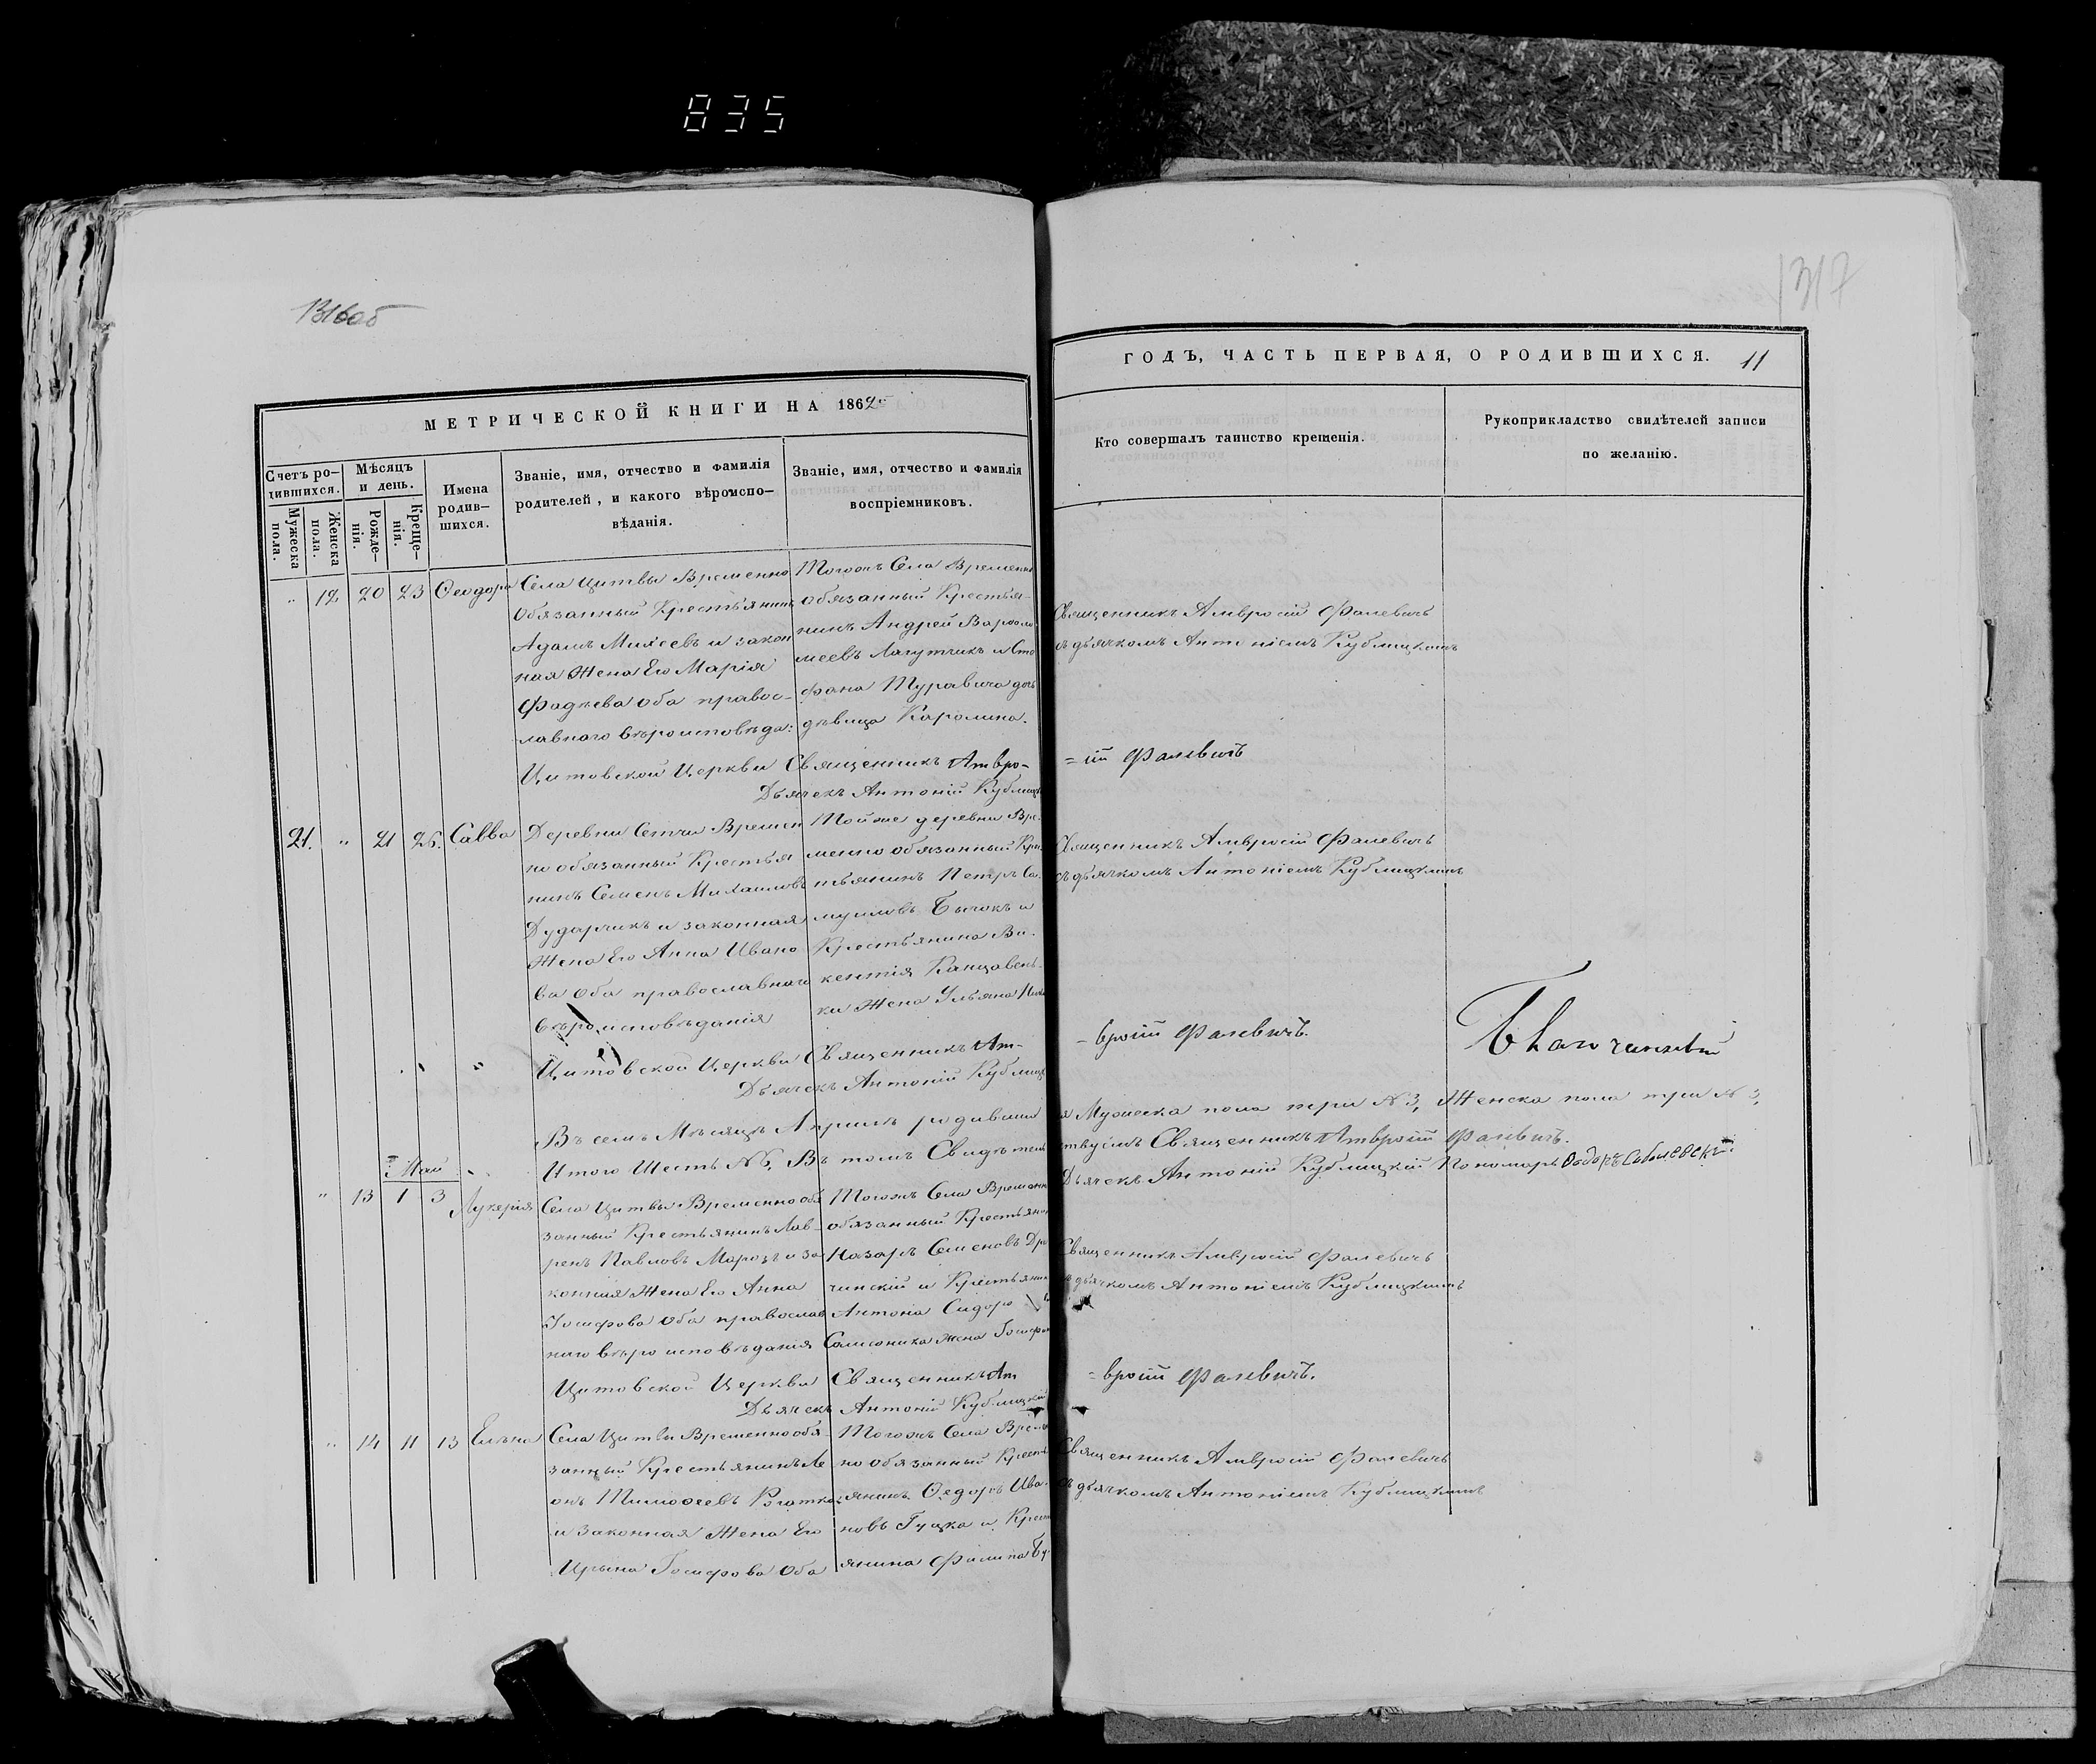 835
1316об
1317
МЕТРИЧЕСКОЙ КНИГИ НА 1862
ГОДЪ, ЧАСТЬ ПЕРВАЯ, О РОДИВШИХСЯ. 11
Счетъ ро-
дившихся.
Мужеска
пола.
Женска
пола.
Мѣсяцъ
и день.
Рожде-
нія.
Креще-
нія.
Имена
родив-
шихся.
Званіе, имя, отчество и фамилія
родителей, и какого вѣроиспо-
вѣданія.
Званіе, имя, отчество и фамилія
воспріемниковъ.
Кто совершалъ таинство крещенія.
Рукоприкладство свидѣтелей записи
по желанію.
" 12 20 23 Ѳеодора
Села Цитвы Временно
обязанный Крестьянинъ
Адамъ Моисеевъ и закон
ная Жена Его Марія
Фадѣева оба правос-
лавного вѣроисповѣда:
Тогожъ Села Временно
обязанный Крестья-
нинъ Андрей Варфоло
меевъ Лагутчикъ и Сте
фана Туровича дочь
дѣвица Каролина.
Священникъ Амвросій Фалевичъ
съ дьячкомъ Антоніемъ Кублицкимъ
Цитовской Церкви Священникъ Амвро-
=ій Фалевичъ
Дьячекъ Антоній Кублицк
21. " 21 26. Савва
Деревни Сетчи Времен
но обязанный Крестья
нинъ Семенъ Михаиловъ
Дударчикъ и законная
Жена Его Анна Ивано
ва Оба православнаго
вѣроисповѣданія
Тойже деревни Вре-
менно обязанный Крес
тьянинъ Петръ Са-
муиловъ Бычокъ и
Крестьянина Ви-
кентія Канцавень-
ки Жена Ульяна
Священникъ Амвросій Фалевичъ
съ дьячкомъ Антоніемъ Кублицкимъ
Цитовской Церкви Священникъ Ам-
-вросій Фалевичъ.
Дьячекъ Антоній Кублицк
Въ семъ Мѣсяцѣ Апрелѣ родивши
я Мужеска пола три N 3, Женска пола три N 3,
Итого Шесть N 6, Въ томъ Свидѣтель
ствуемъ Священникъ Амвросій Фалевичъ.
Дьячекъ Антоній Кублицкій Пономарь
Май
" 13 1 3 Лукерія
Села Цитвы Временно обя
занный Крестьянинъ Лав-
ренъ Павловъ Марозъ и за
конная Жена Его Анна
Іосифова оба православ
наго вѣроисповѣданія
Тогожъ Села Временн
обязанный Крестьянин
Назаръ Семеновъ Дро
чинскій и Крестьянин
Антона Сидоро
Самсоника Жена Іосифа
Священникъ Амвросій Фалевичъ
съ дьячкомъ Антоніемъ Кублицкимъ
Цитовской Церкви Священникъ Ам
-вросій Фалевичъ.
Дьячекъ Антоній Кублицкій
" 14 11 13 Елена
Села Цитвы Временно обя-
занный Крестьянинъ Ле
онъ Тимоѳеевъ
и законная Жена Его
Ирына Іосифова Оба
Тогожъ Села Време
но обязанный Кресть
янинъ Ѳедоръ Ива-
новъ Гуцка и Крест
янина Филипа Бу
Священникъ Амвросій Фалевичъ
съ дьячкомъ Антоніемъ Кублицкимъ